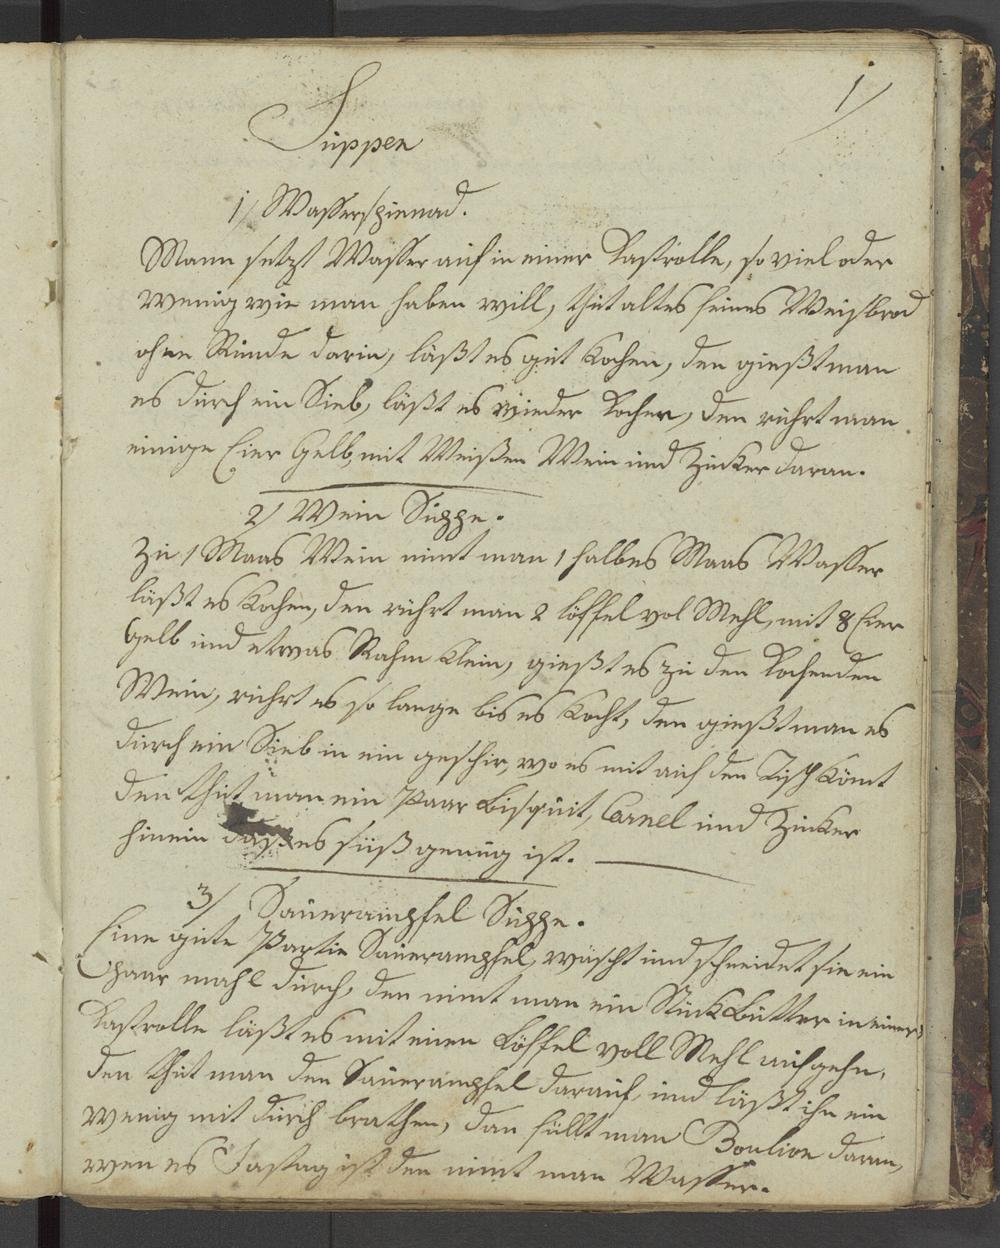 1/
Suppen
1/ Wasserspienad.
Mann setzt Wasser auf in einer Kastrolle, so viel oder
wenig wie man haben will, thut altes feines Weisbrod
ohne Rinde darin, läßt es gut kochen, den gießt man
es durch ein Sieb, läßt es wieder kochen, den rührt man
einige Eier Gelb, mit Weißen Wein und Zucker daran.
2/ Wein Suppe.
Zu 1 Maas Wein nimt man 1 halbes Maas Wasser
läßt es kochen, den rührt man 2 löffel vol Mehl, mit 8 Eier
Gelb und etwas Rahm klein, gießt es zu den kochenden
Wein, rührt es so lange bis es kocht, den gießt man es
durch ein Sieb in ein geschir, wo es mit auf den Tisch kömt
den thut man ein Paar Bisquit, Canel und Zucker
hinein daß es süß genug ist.
3/ Saurampfel Suppe.
Eine gute Partie Sauerampfel, wäscht und schneidet sie ein
Paar mahl durch, den nimt man ein Stück Butter in einer
Kastrolle läßt es mit einen Löffel voll Mehl aufgehn,
den thut man den Sauerampfel darauf, und läßt ihn ein
wenig mit durch brathen, dan füllt man Boulion daran,
wen es Fastag ist den nimt man Wasser.